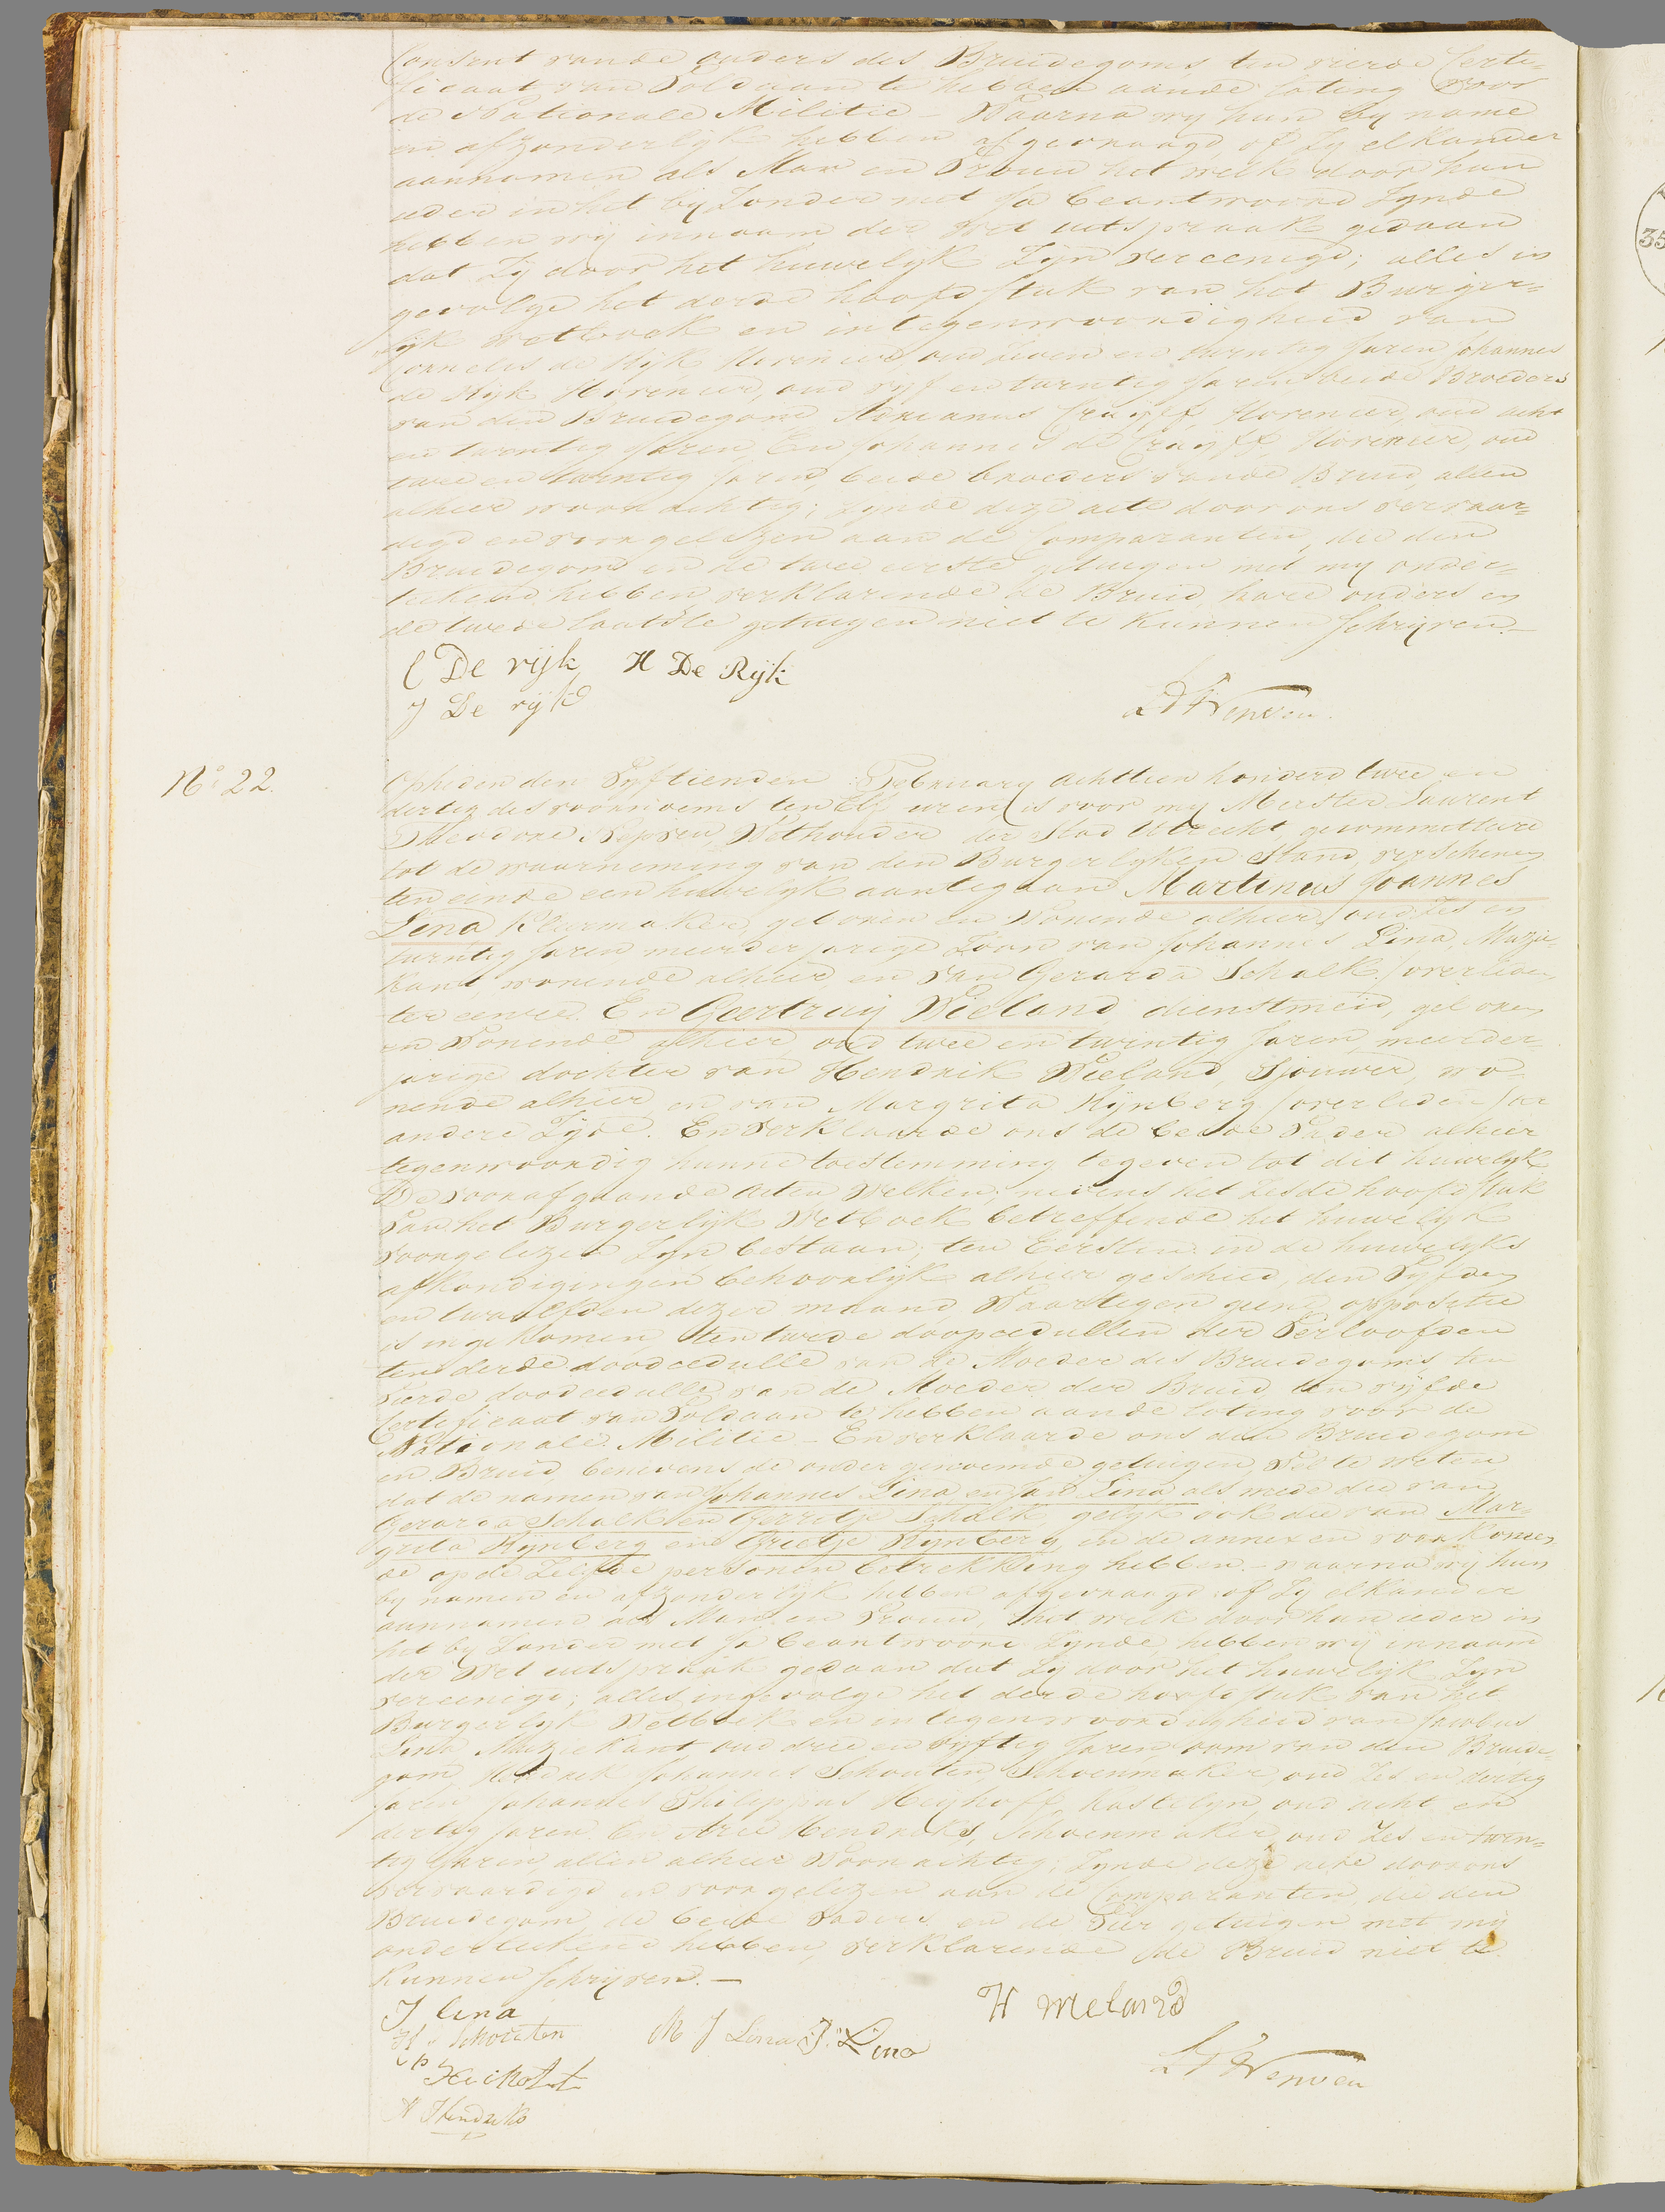 Consent vande ouders des Bruidegoms ten vierde Certi=
ficaat van Voldaan te hebben aande loting voor
de Nationale Militie – Waarna wy hun by name
en afzonderlyk hebben afgevraagd of Zy elkander
aannamen als Man en Vrouw het welk door hun
ieder in het byZonder met Ja beantwoord Zynde
hebben wy in naam der Wet uitspraak gedaan
dat Zy door het huwelyk Zyn vereenigd; alles in
gevolge het derde hoofdstuk van het Burger=
lyk wetboek en in tegenwoordigheid van
Cornelis de Rijk Hovenier oud Zeven en twintig Jaren Johannes
de Rijk Hovenier, oud vyf en twintig Jaren beide Broeders
van den Bruidegom Adrianus Cruyff Hovenier, oud acht
en twintig Jaren, En Johannes de Cruyff, Hovenier, oud
twee en twintig Jaren, beide broeders vande Bruid, allen
alhier woonachtig; Zynde deze acte door ons vervaar=
digd en voorgelezen aan de Comparanten, die den
Bruidegom en de twee eerste getuigen met my onder=
teekend hebben, verklarende de Bruid, hare ouders en
de twede laatste getuigen niet te kunnen schryven. –
C De rijk H De Rijk
J De rijk

No 22. Opheden den Vyftienden February achttien honderd twee en
dertig des voornoems ten Elf uren, is voor my Meester Laurent
Theodore Nepveu, Wethouder der Stad Utrecht, gecommitteerd
tot de waarneming van den Burgerlyken Stand, verschenen
ten einde een huwelyk aantegaan Martinus Joannes
Lina Kleermaker, geboren en Wonende alhier, oud Zes en
twintig Jaren meerderjarige Zoon van Johannes Lina, Muzie=
kant, wonende alhier, en van Gerarda Schalk, overleden
ter eenre. En Geertruij Wieland, dienstmeid, geboren
en Wonende alhier, oud twee en twintig Jaren, meerder=
jarige dochter van Hendrik Wieland, Sjouwer, wo=
nende alhier, en van Margrita Rijnberg, overleden ter
andere Zyde. En Verklaarde ons de beide Vader alhier
tegenwoordig hunne toestemming tegeven tot dit huwelyk
De voorafgaande acten Welken, nevens het Zesde hoofdstuk
Van het Burgerlijk Wetboek betreffende het huwelijk
voorgelezen Zyn bestaan; ten Eersten in de huwelyks
afkondigingen behoorlijk alhier geschied, den Vyfden
en twaalfden dezer maand, Waartegen geene oppositie
is ingekomen, ten twede doopcedullen der Verloofden
ten derde doodcedulle van de Moeder des Bruidegoms, ten
Vierde doodcedulle vande Moeder der Bruid, ten vijfde
Certificaat van Voldaan te hebben aande loting voor de
Nationale Militie – En verklaarde ons den Bruidegom
en Bruid benevens de onder genoemde getuigen, Wel te weten
dat de namen van Johannes Lina en Jan Lina als mede die van
Gerarda Schalk en Gerritje Schalk, gelyk ook die van Mar=
grita Rijnberg en Grietje Rynberg in de annexen voorkomen
de op de Zelfde personen betrekking hebben. – waarna wij hun
by namen en afzonderlijk hebben afgevraagd: of Zy elkander
aannamen als Man en Vrouw, het welk door hun ieder in
het by Zonder met Ja beantwoord Zynde, hebben wij in naam
der Wet uitspraak gedaan dat Zy door het huwelijk Zyn
vereenigd; alles in gevolge het derde hoofdstuk van het
Burgerlyk Wetboek en in tegenwoordigheid van Jacobus
Lina Muziekant, oud drie en vyftig Jaren, oom van den Bruide=
gom, Hendrik Johannes Schouten, Schoenmaker, oud Zes en dertig
Jaren Johannes Philippus Heijhoff, kastelyn, oud acht en
dertig Jaren En Arie Hendriks, Schoenmaker, oud Zes en twin=
tig Jaren, allen alhier Woonachtig; Zynde deze acte door ons
vervaardigd en voorgelezen aan de Comparanten, die den
Bruidegom, de beide vaders en de Vier getuigen met mij
onderteekend hebben, verklarende de Bruid niet te
Kunnen schryven. –
J Lina
H J Schouten M J Lina J: Lina H Wieland
A Hendriks